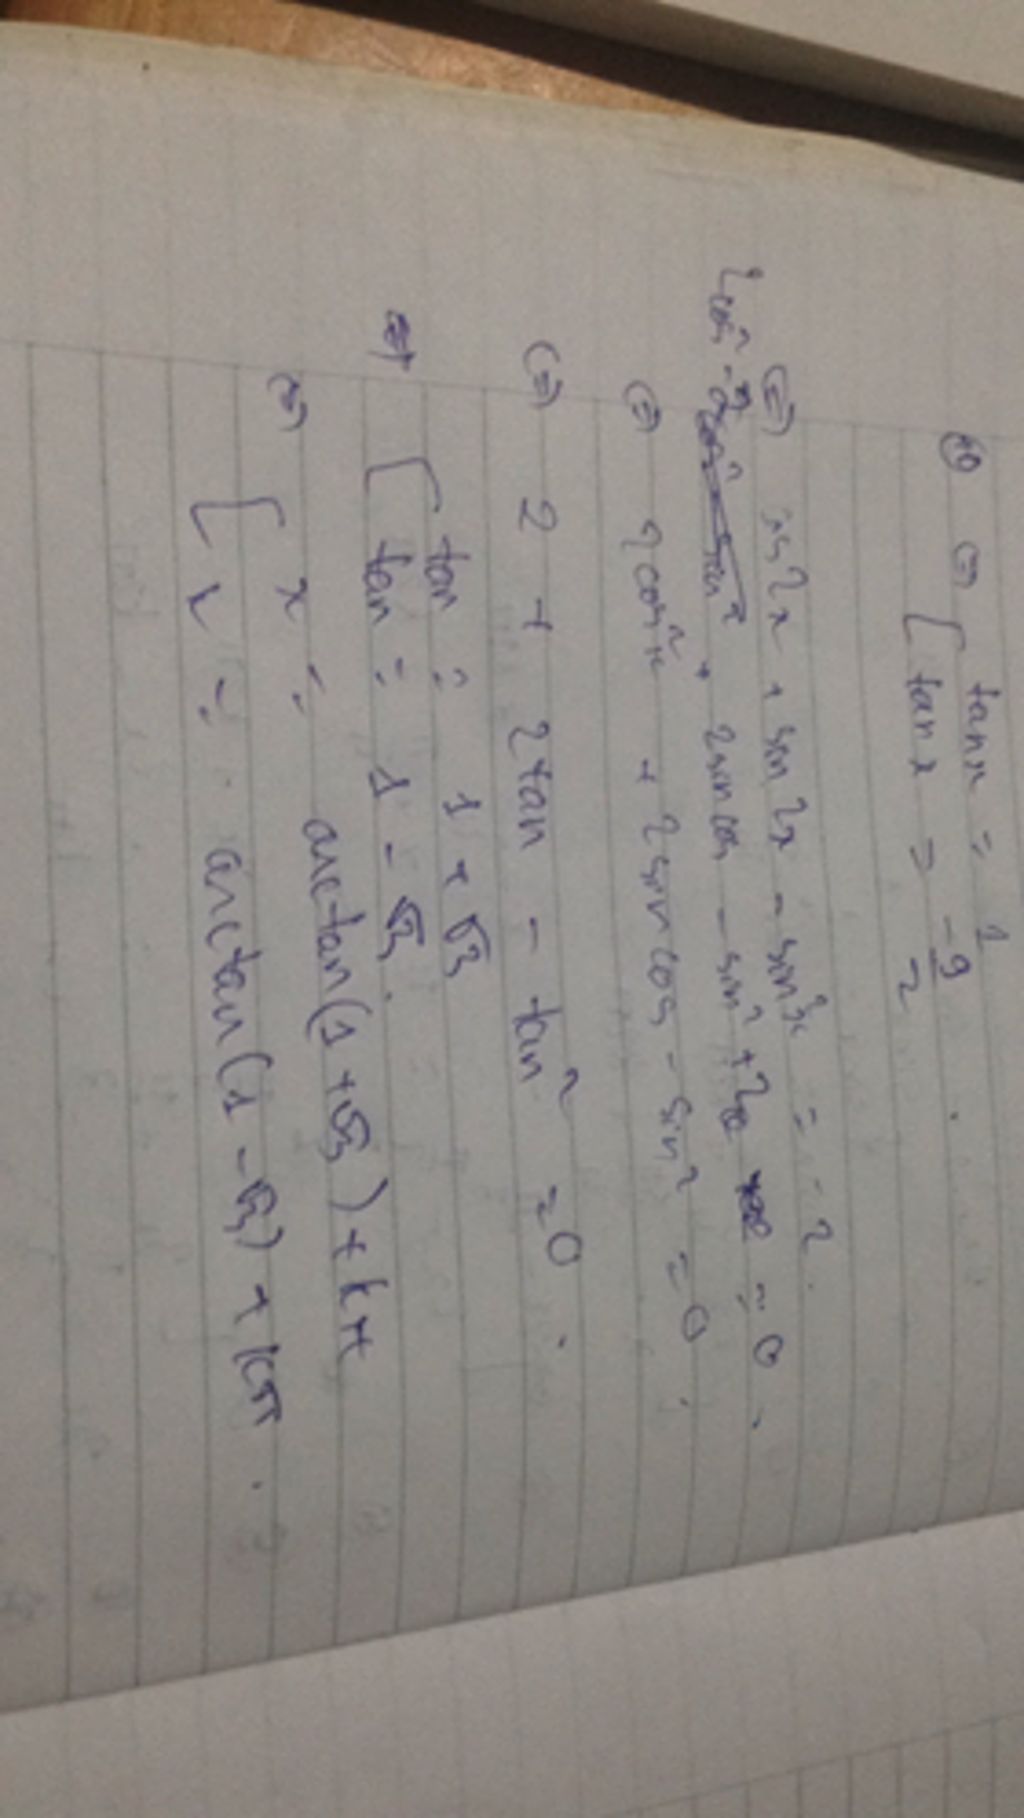 ⇔ [ tanx = 1
tanx = -9/2 .
⇔ cos2x + sin2x - sin²x = -2 .
2cos² - + 2sincos - sin² + 2 = 0 .
⇔ 2cos²x + 2sincos - sin² = 0 .
⇔ 2 + 2tan - tan² = 0 .
⇔ [ tan = 1 + √3
tan = 1 - √3 .
⇔ [ x = arctan(1 + √3) + kπ
x = arctan(1 - √3) + kπ .